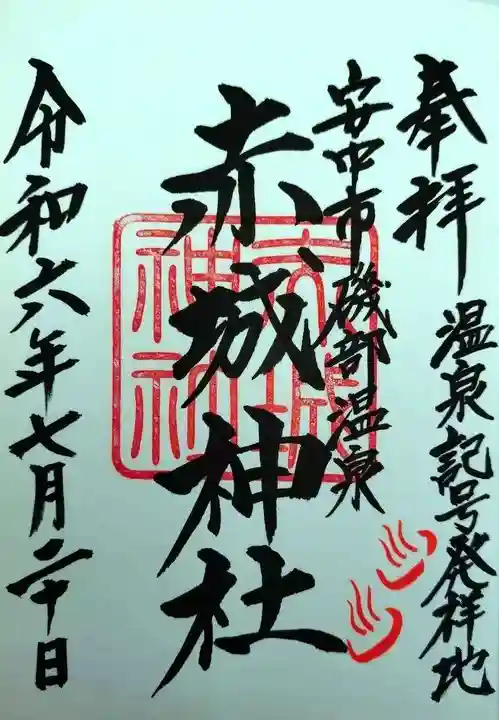 奉拝
温泉記号発祥地
安中市磯部温泉
赤城神社
赤城
神社
令和六年七月二十日